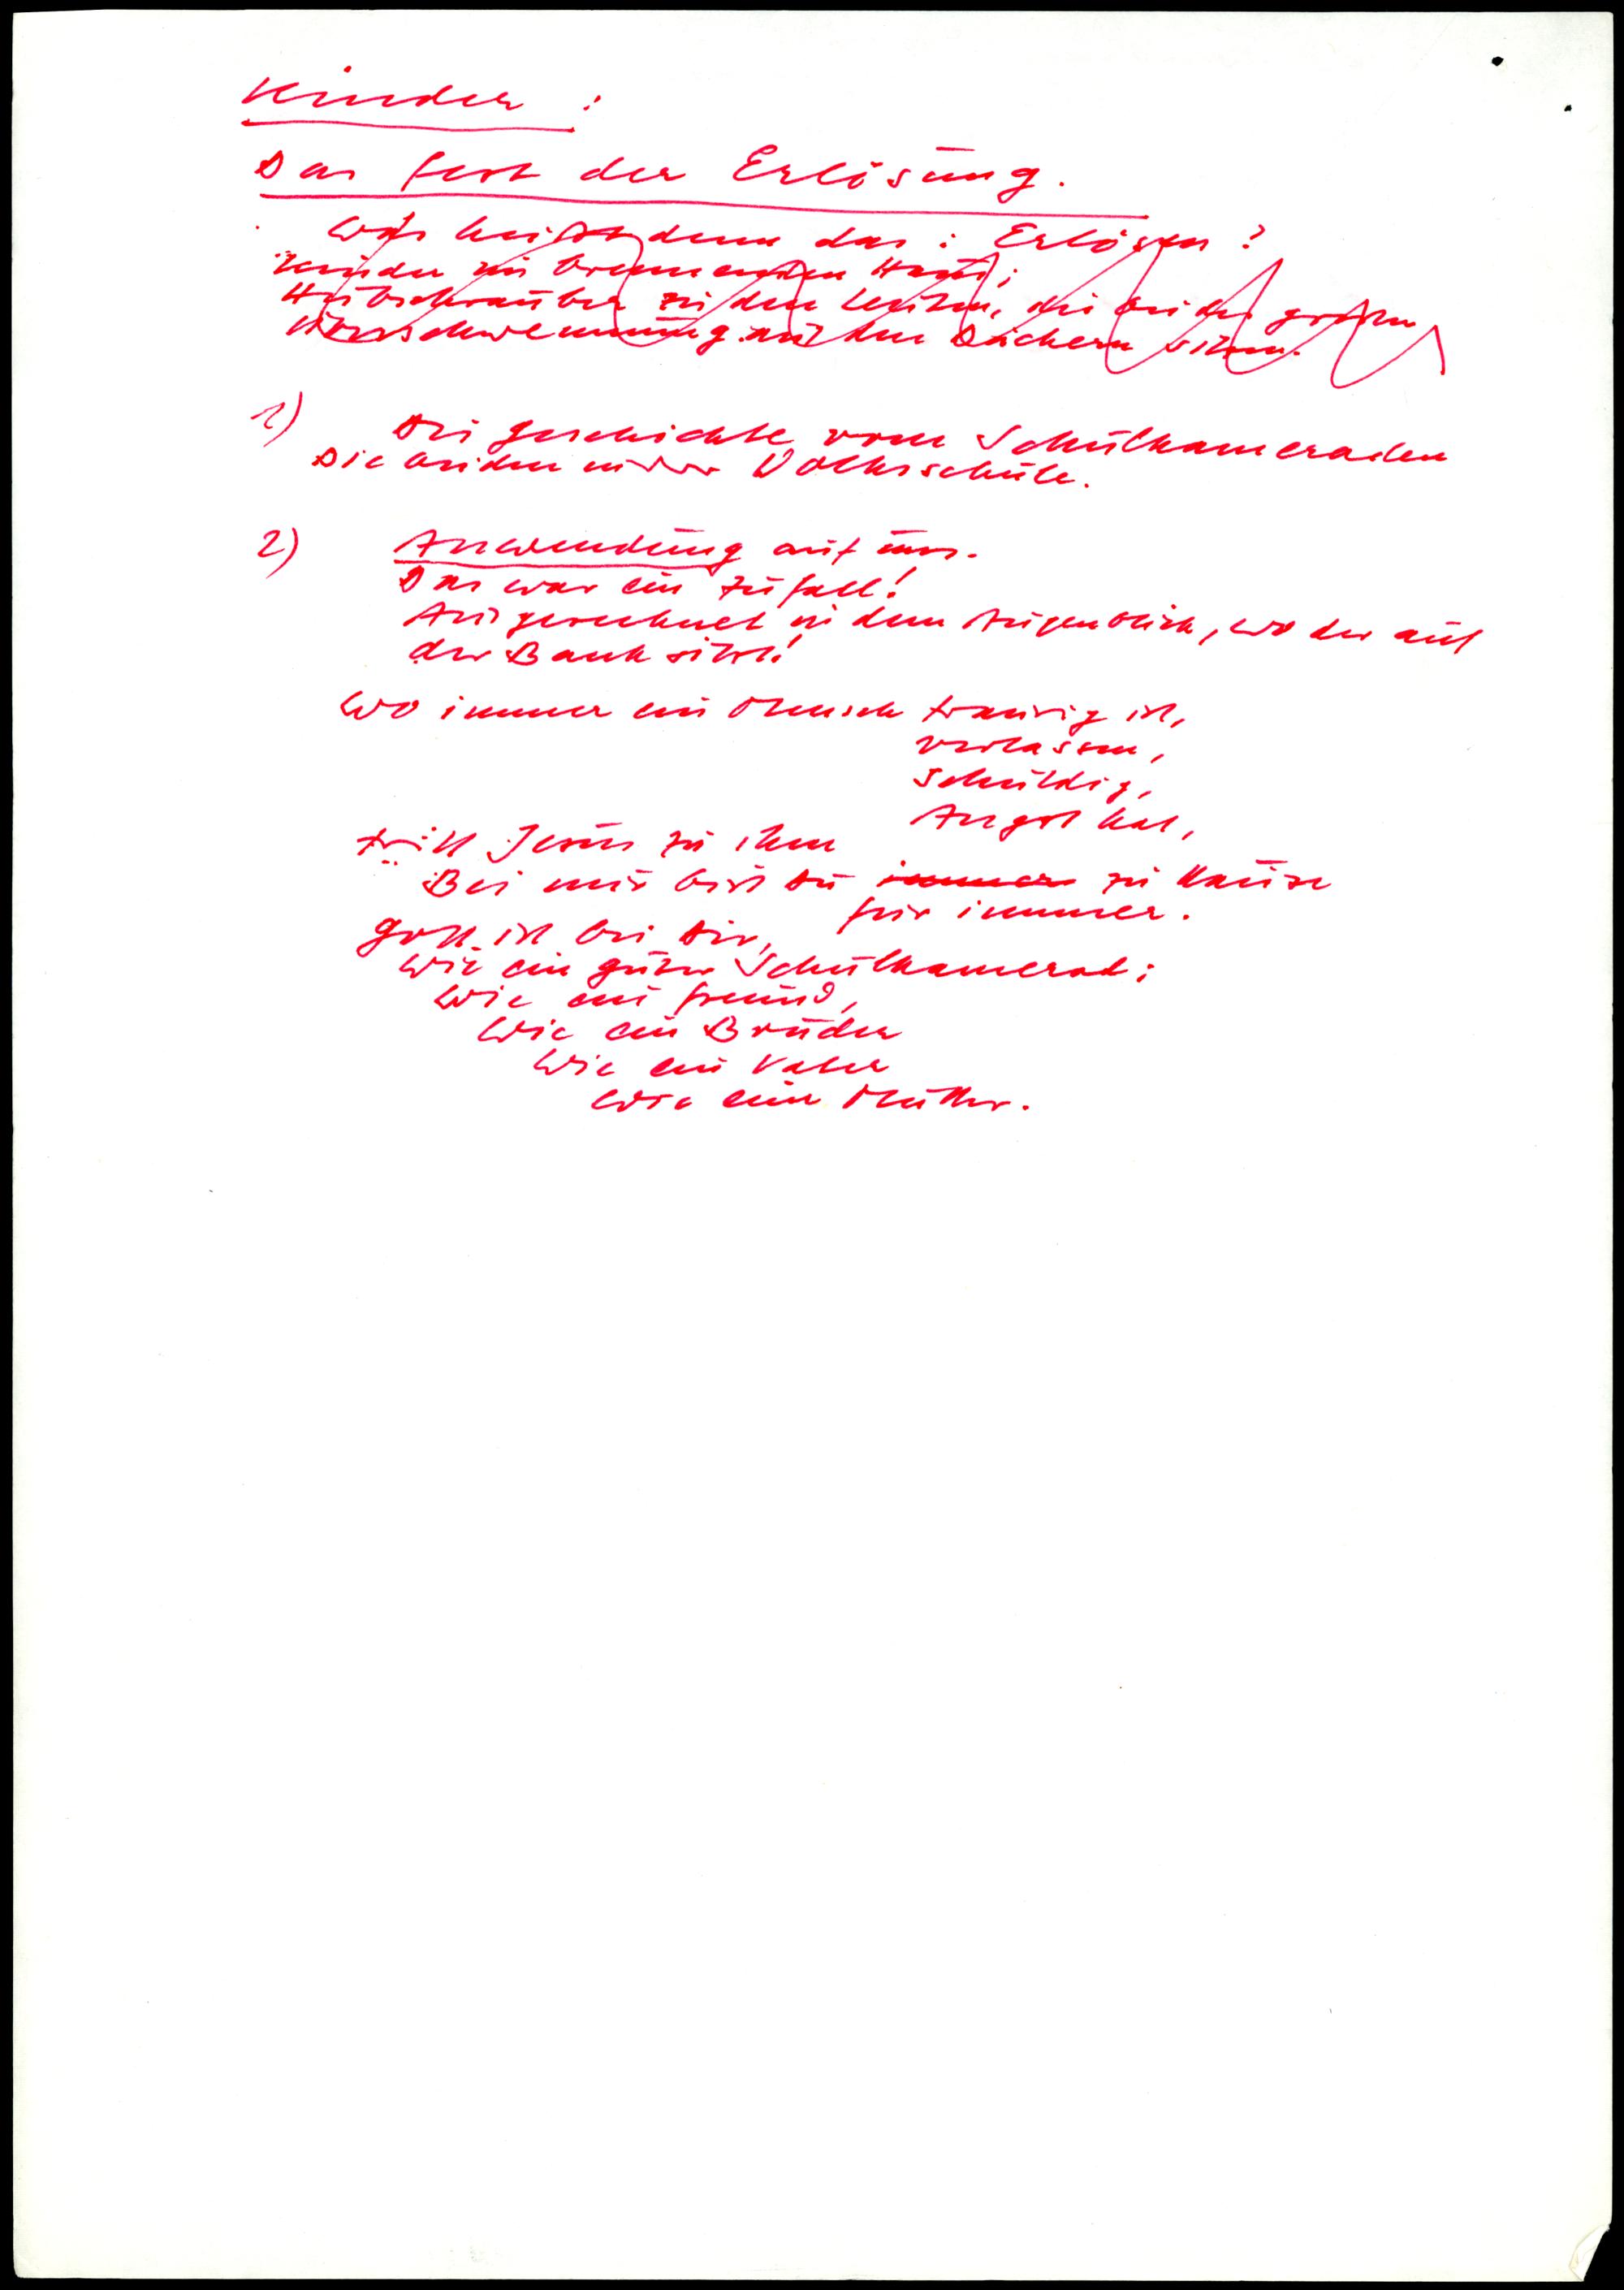 Kinder :
Das Fest der Erlösung.
Was heisst denn das : Erlösen ?
Kinder im brennenden Haus;
Hubschrauber zu den Leuten, die bei der grossen
Überschwemmung auf den Dächern sitzen.
1) Die Geschichte vom Schulkameraden
Die beiden in der Volksschule.
2) Anwendung auf uns.
Das war ein Zufall!
Ausgerechnet in dem Augenblick, wo der auf
der Bank sitzt!
Wo immer ein Mensch traurig ist,
verlassen,
schuldig,
Angst hat,
tritt Jesus zu ihm
Bei mir bist Du immer zu Hause
für immer.
Gott ist bei Dir,
wie ein guter Schulkamerad;
wie ein Freund,
wie ein Bruder
wie ein Vater
wie eine Mutter.